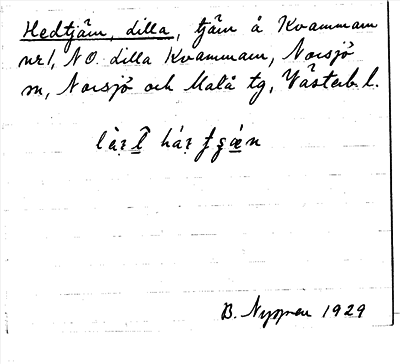 Hedtjärn, Lilla, tjärn å Kvarnmam
nr 1, N O. Lilla Kvarnmam, Norsjö
sn, Norsjö och Malå tg, Västerb. l.
B. Nygren 1929